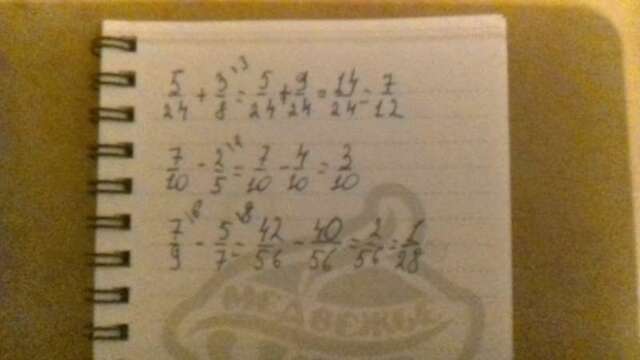 5/24 + 3/8 \3 = 5/24 + 9/24 = 14/24 = 7/12
7/10 - 2/5 \2 = 7/10 - 4/10 = 3/10
7/9 \6 - 5/7 \8 = 42/56 - 40/56 = 2/56 = 1/28
МЕДВЕЖЬЕ